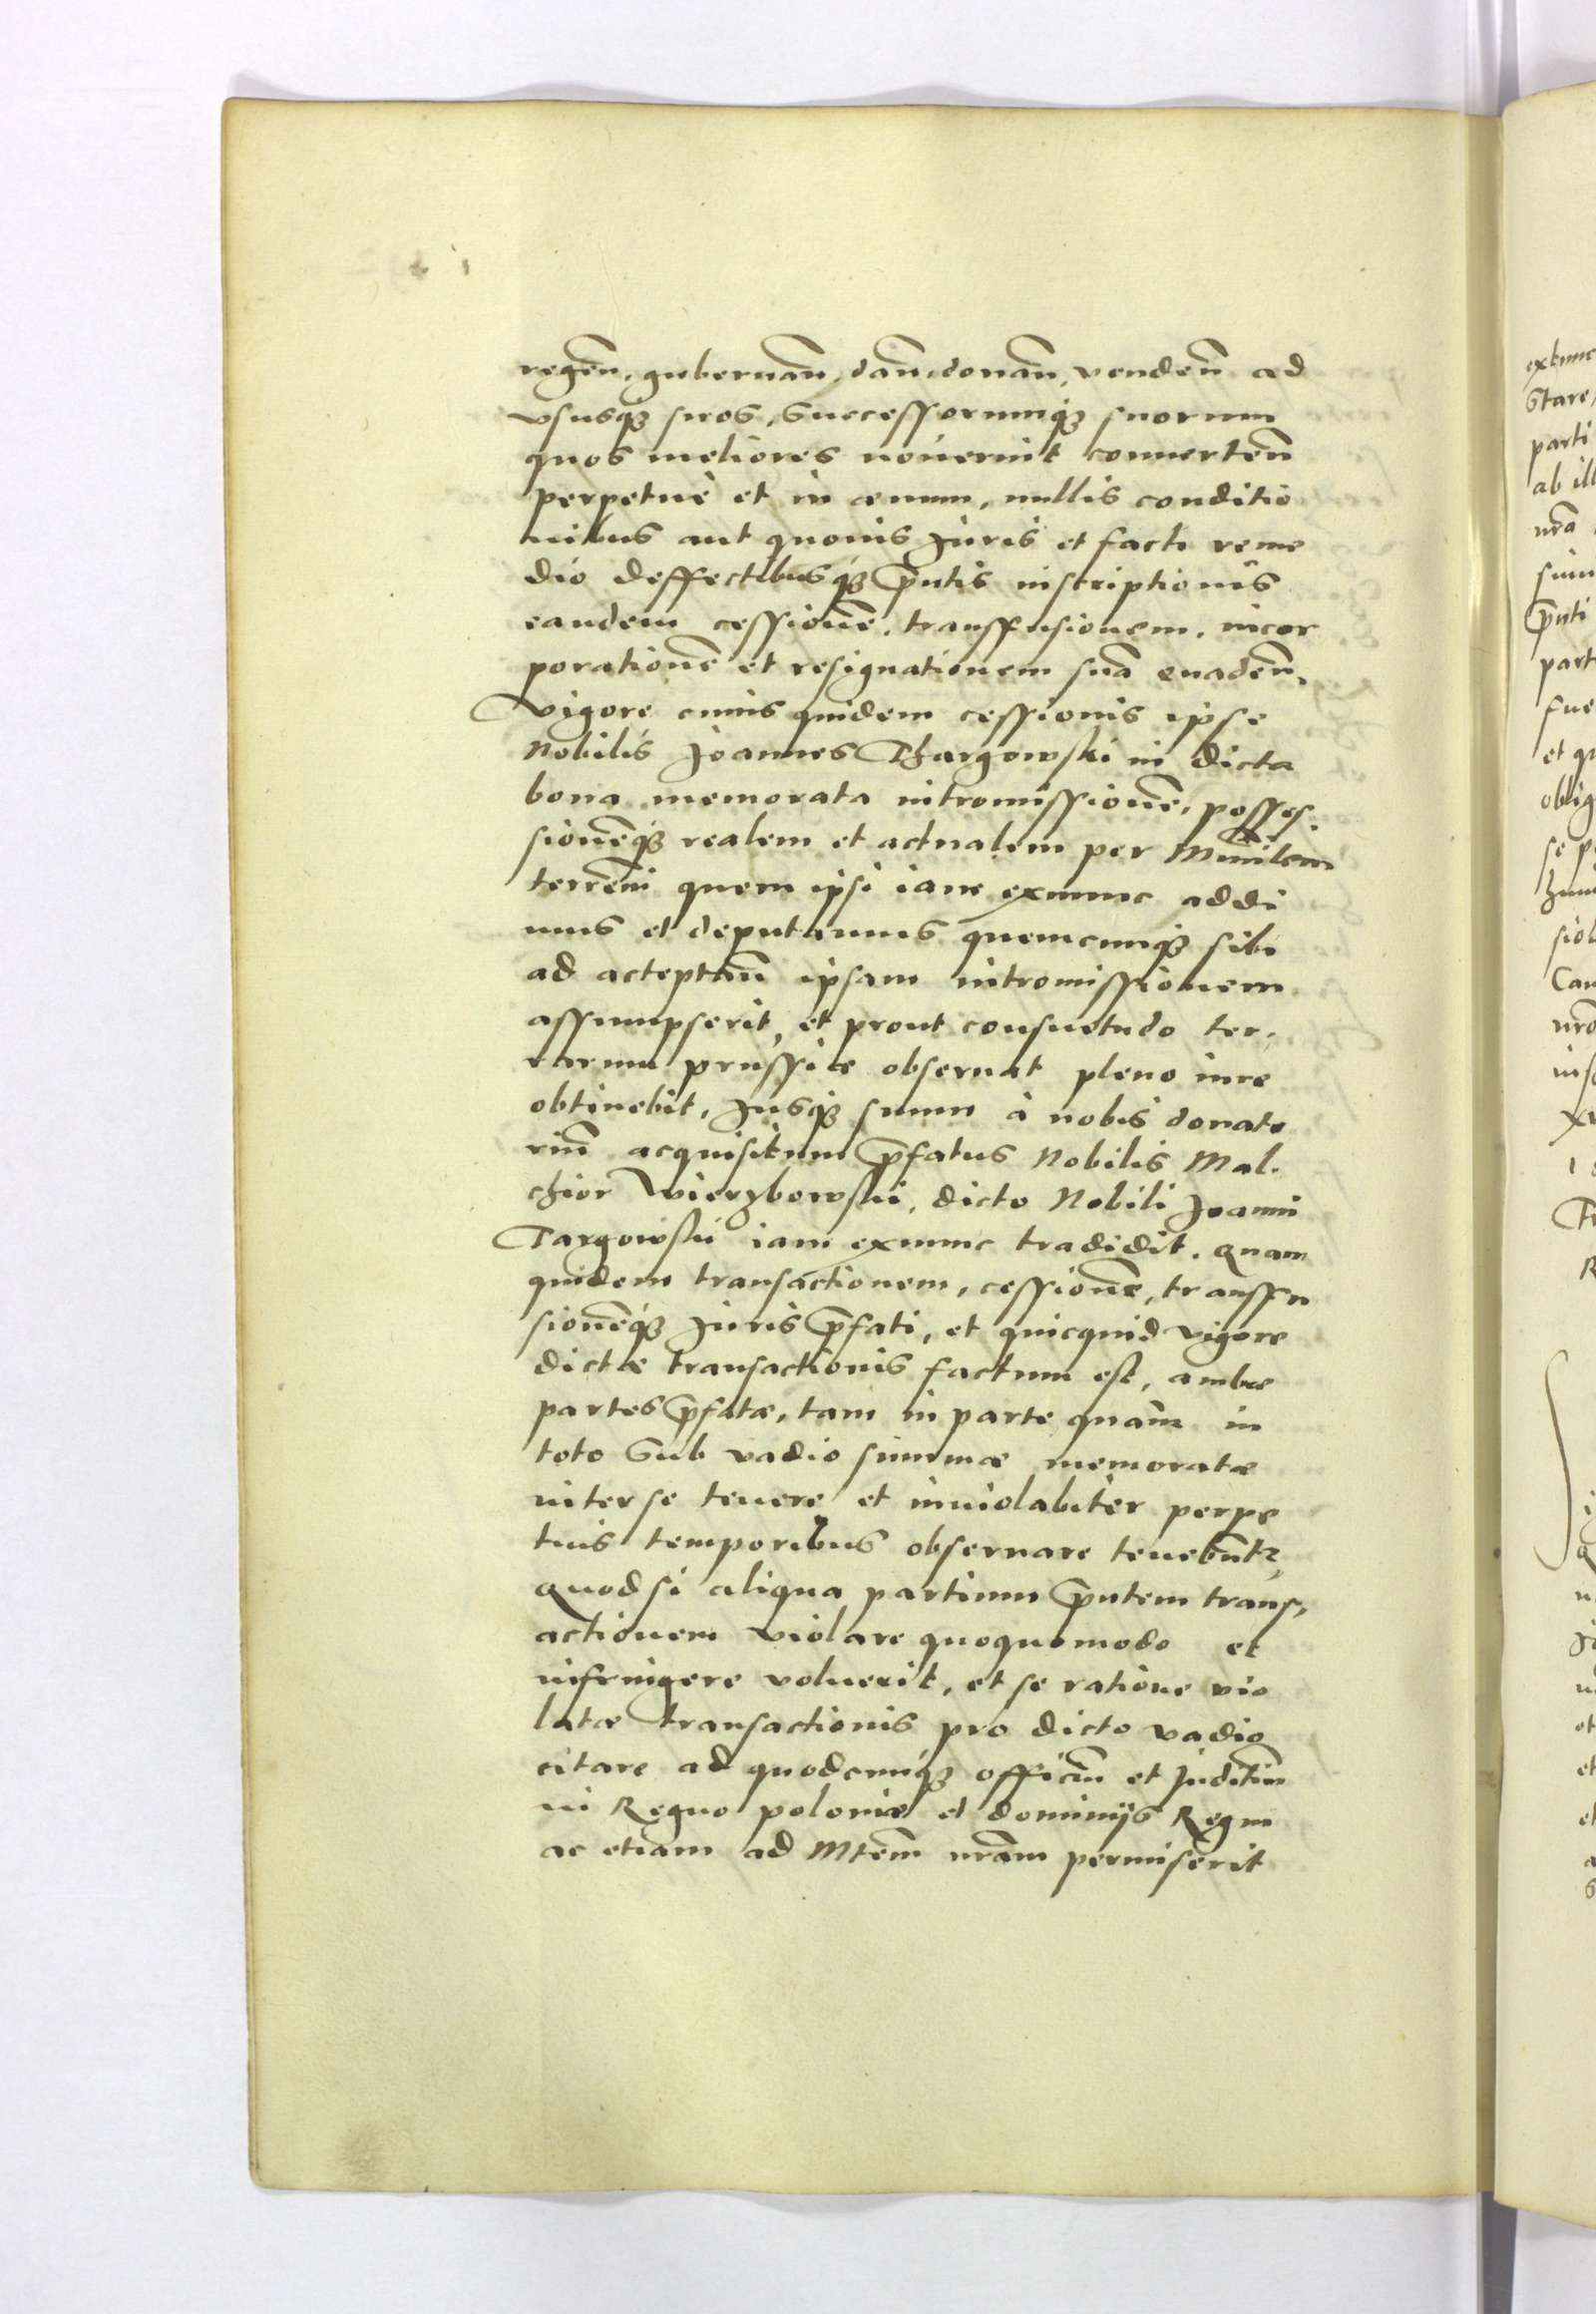 regen̄, gubernan̄, dan̄, donan̄, venden̄ ad
vsusq̃ suos, Successorumq̃ suorum
quos meliores nouerint conuerten̄
perpetuè et in aeuum, nullis conditio
nibus aut quouis Juris et facti reme
dio deffectibusq̃ p̄ntis inscriptionis
eandem cessionē, transfusionem, incor
porationē et resignationem suā euaden̄,
Vigore cuius quidem cessionis ipse
Nobilis Joannes Thargowski in dicta
bona memorata intromissionē, posses,
sionēq̃ realem et actualem per
terren̄ quem ipsi iam exnunc addi
mus et deputamus quemcunq̃ sibi
ad acceptan̄ ipsam intromissionem
assumpserit, et prout consuetudo ter,
rarum prussiae obseruat pleno iure
obtinebit, Jusq̃ suum à nobis donato
riū acquisitum p̄fatus Nobilis Mal,
chior Wierzbowski, dicto Nobili Joanni
Targowski iam exnunc tradidit. Quam
quidem transactionem, cessionē, transfu
sionēq̃ Juris p̄fati, et quicquid vigore
dictae transactionis factum est, ambae
partes p̄fatae, tam in parte quàm in
toto Sub vadio summae memoratae
inter se tenere et inuiolabiter perpe
tuis temporibus obseruare tenebūtr,
Quod si aliqua partium p̄ntem trans,
actionem violare quoquomodo et
infringere voluerit, et se ratione vio
latae transactionis pro dicto vadio
citare ad quodcunq̃ officiū et Juditiū
in Regno poloniae et dominijs Regni
ac etiam ad Mtem̄ nrām permiserit
extunc
Stare,
parti
ab ill
nrā
p̄nti
part
fue
et qu
oblig
se p